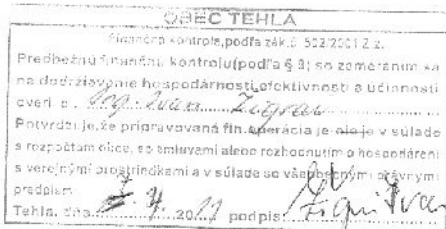 OBEC TEHLA
Finančná kontrola, podľa zák. č. 502/2001 Z.z.
Predbežnú finančnú kontrolu (podľa § 9) so zameraním sa
na dodržiavanie hospodárnosti, efektívnosti a účinnosti
overil p. Ing. Ivan Žigrai
Potvrdzuje, že pripravovaná fin. operácia je - nie je v súlade
s rozpočtom obce, so zmluvami alebo rozhodnutím o hospodárení
s verejnými prostriedkami a v súlade so všeobecnými právnymi
predpismi
Tehla, dňa 20 podpis